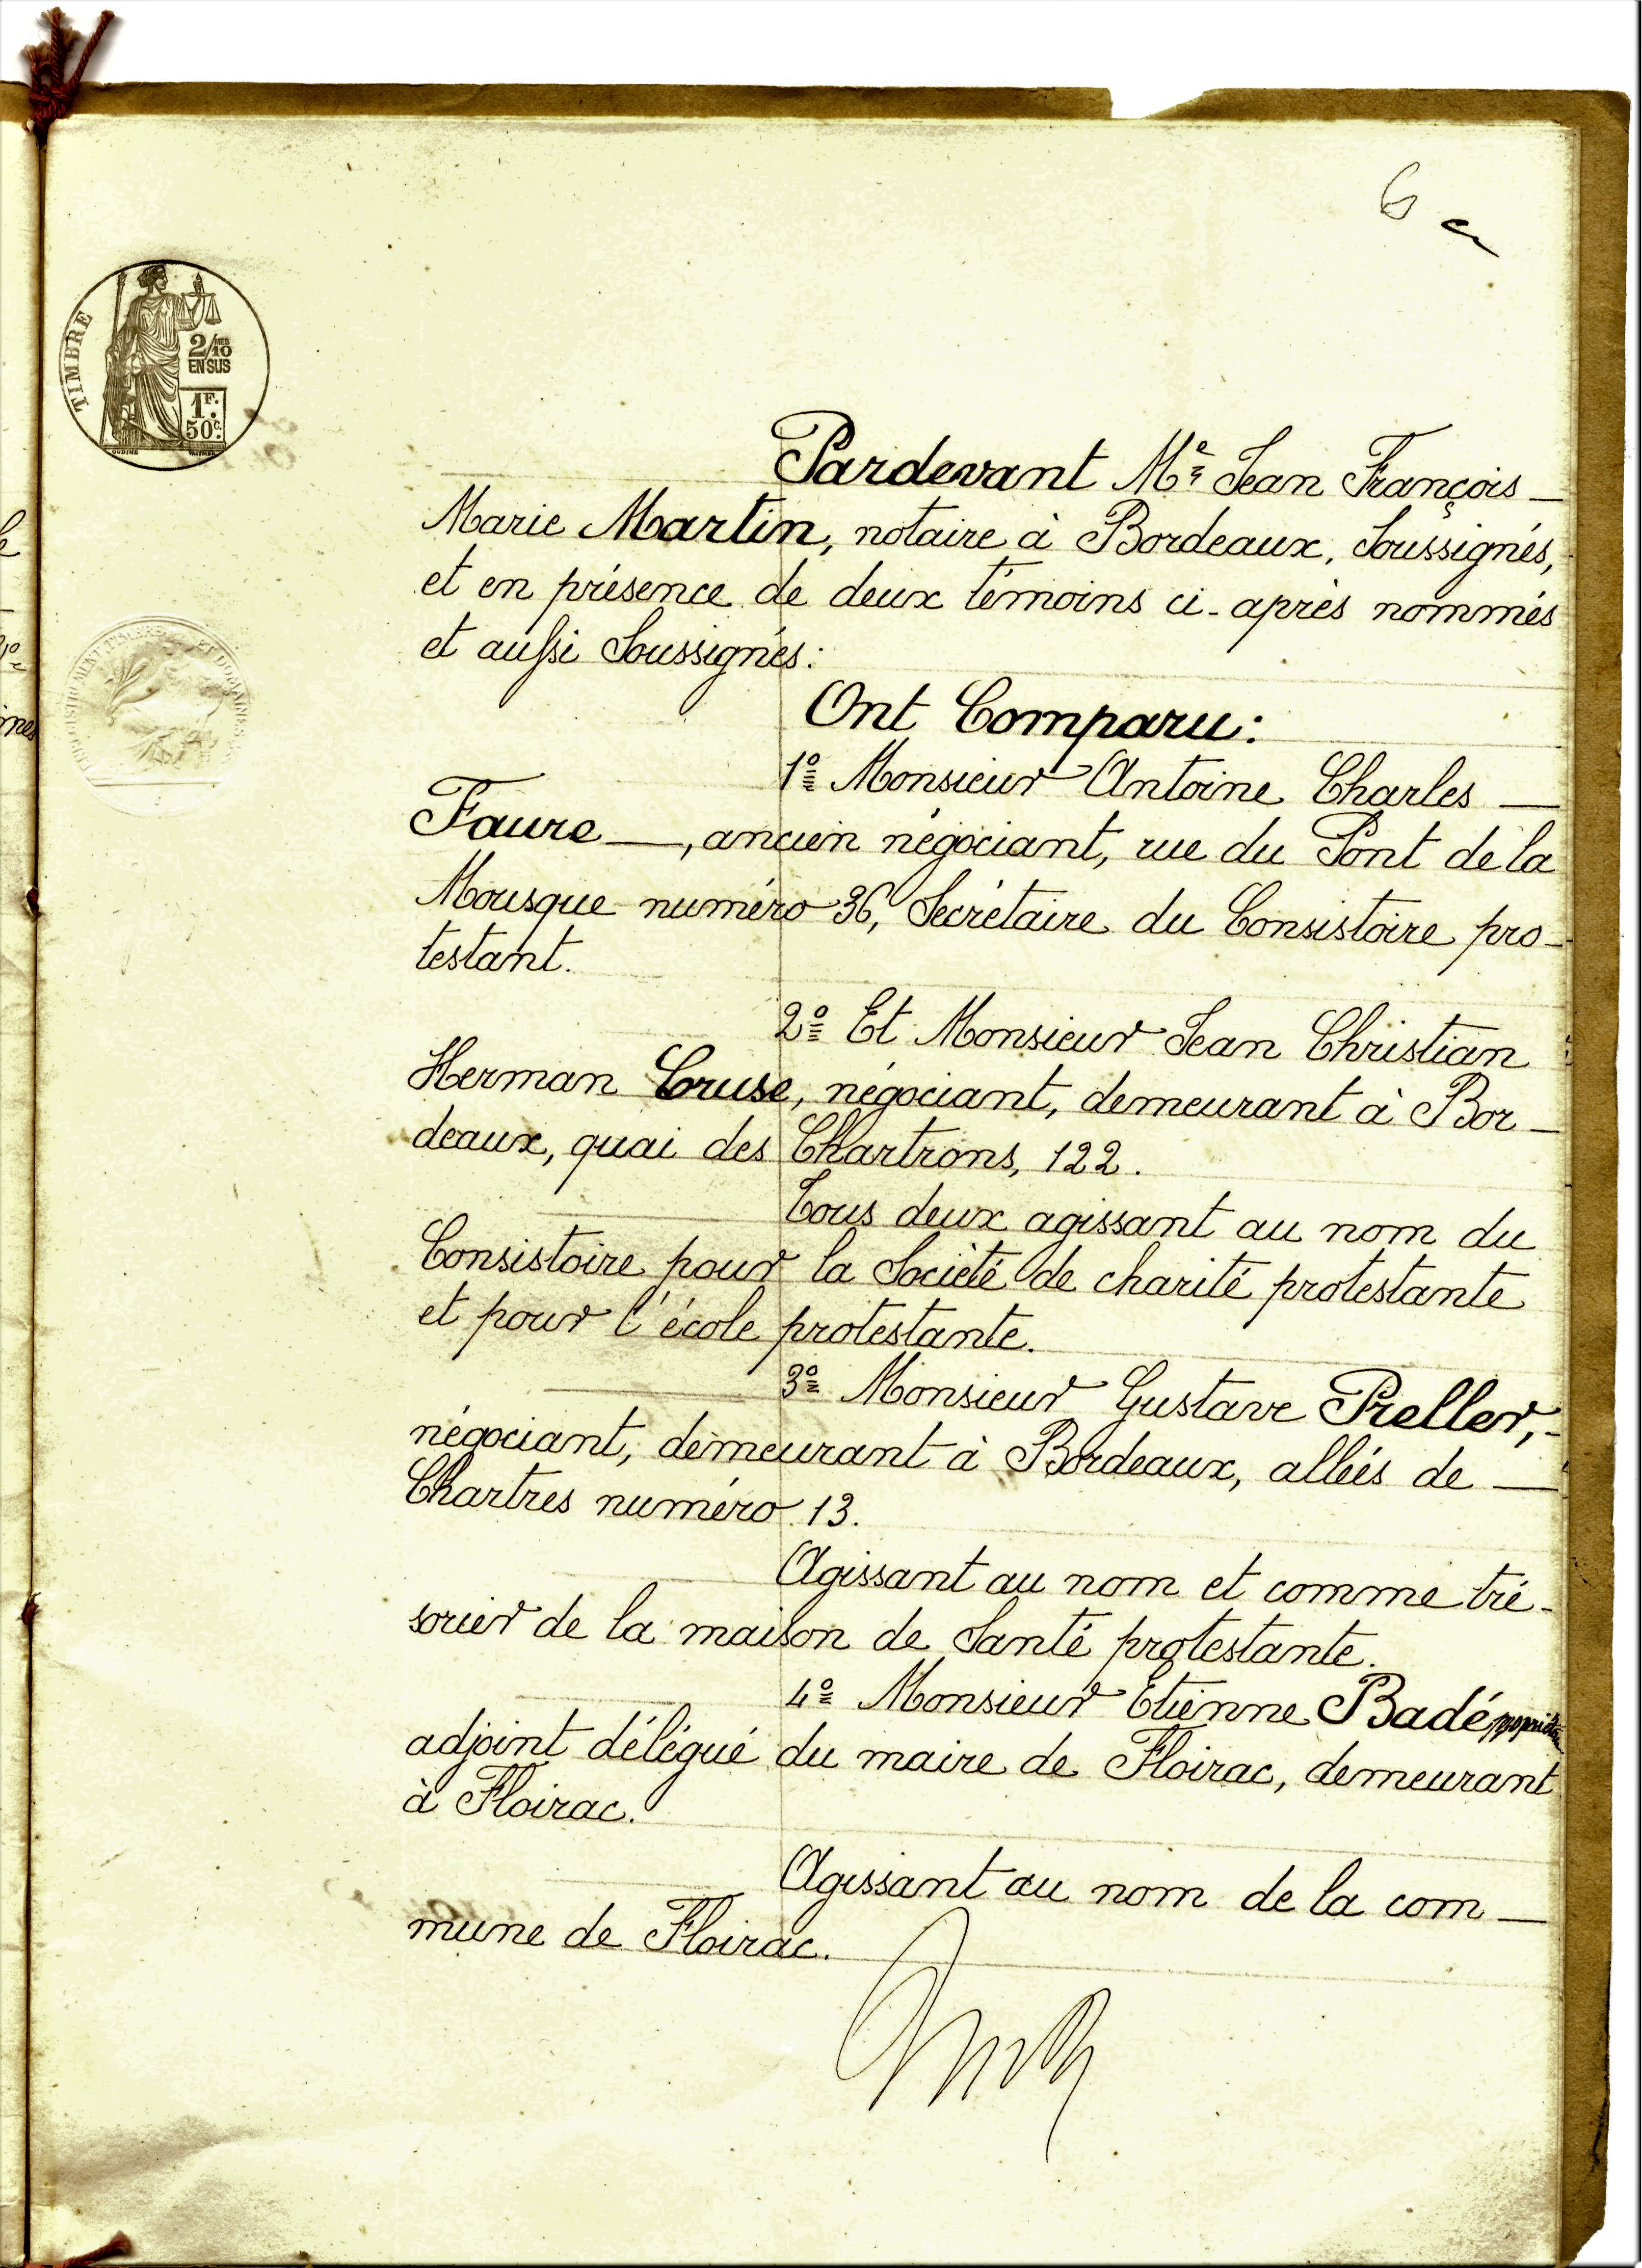 6
TIMBRE
2/10
EN SUS
1F.
50c.
Pardevant Me Jean François —
Marie Martin, notaire à Bordeaux, Soussignés,
et en présence de deux témoins ci-après nommés
et aussi Soussignés:
Ont Comparu:
1o Monsieur Antoine Charles —
Faure —, ancien négociant, rue du Pont de la
Mousque numéro 36, Secrétaire du Consistoire pro-
testant.
2o Et Monsieur Jean Christian
Herman Cruse, négociant, demeurant à Bor-
deaux, quai des Chartrons, 122.
Tous deux agissant au nom du
Consistoire pour la Société de charité protestante
et pour l'école protestante.
3o Monsieur Gustave Preller,-
négociant, demeurant à Bordeaux, allées de —
Chartres numéro 13.
Agissant au nom et comme tré-
sorier de la maison de Santé protestante.
4o Monsieur Etienne Badé
adjoint délégué du maire de Floirac, demeurant
à Floirac.
Agissant au nom de la com-
mune de Floirac.